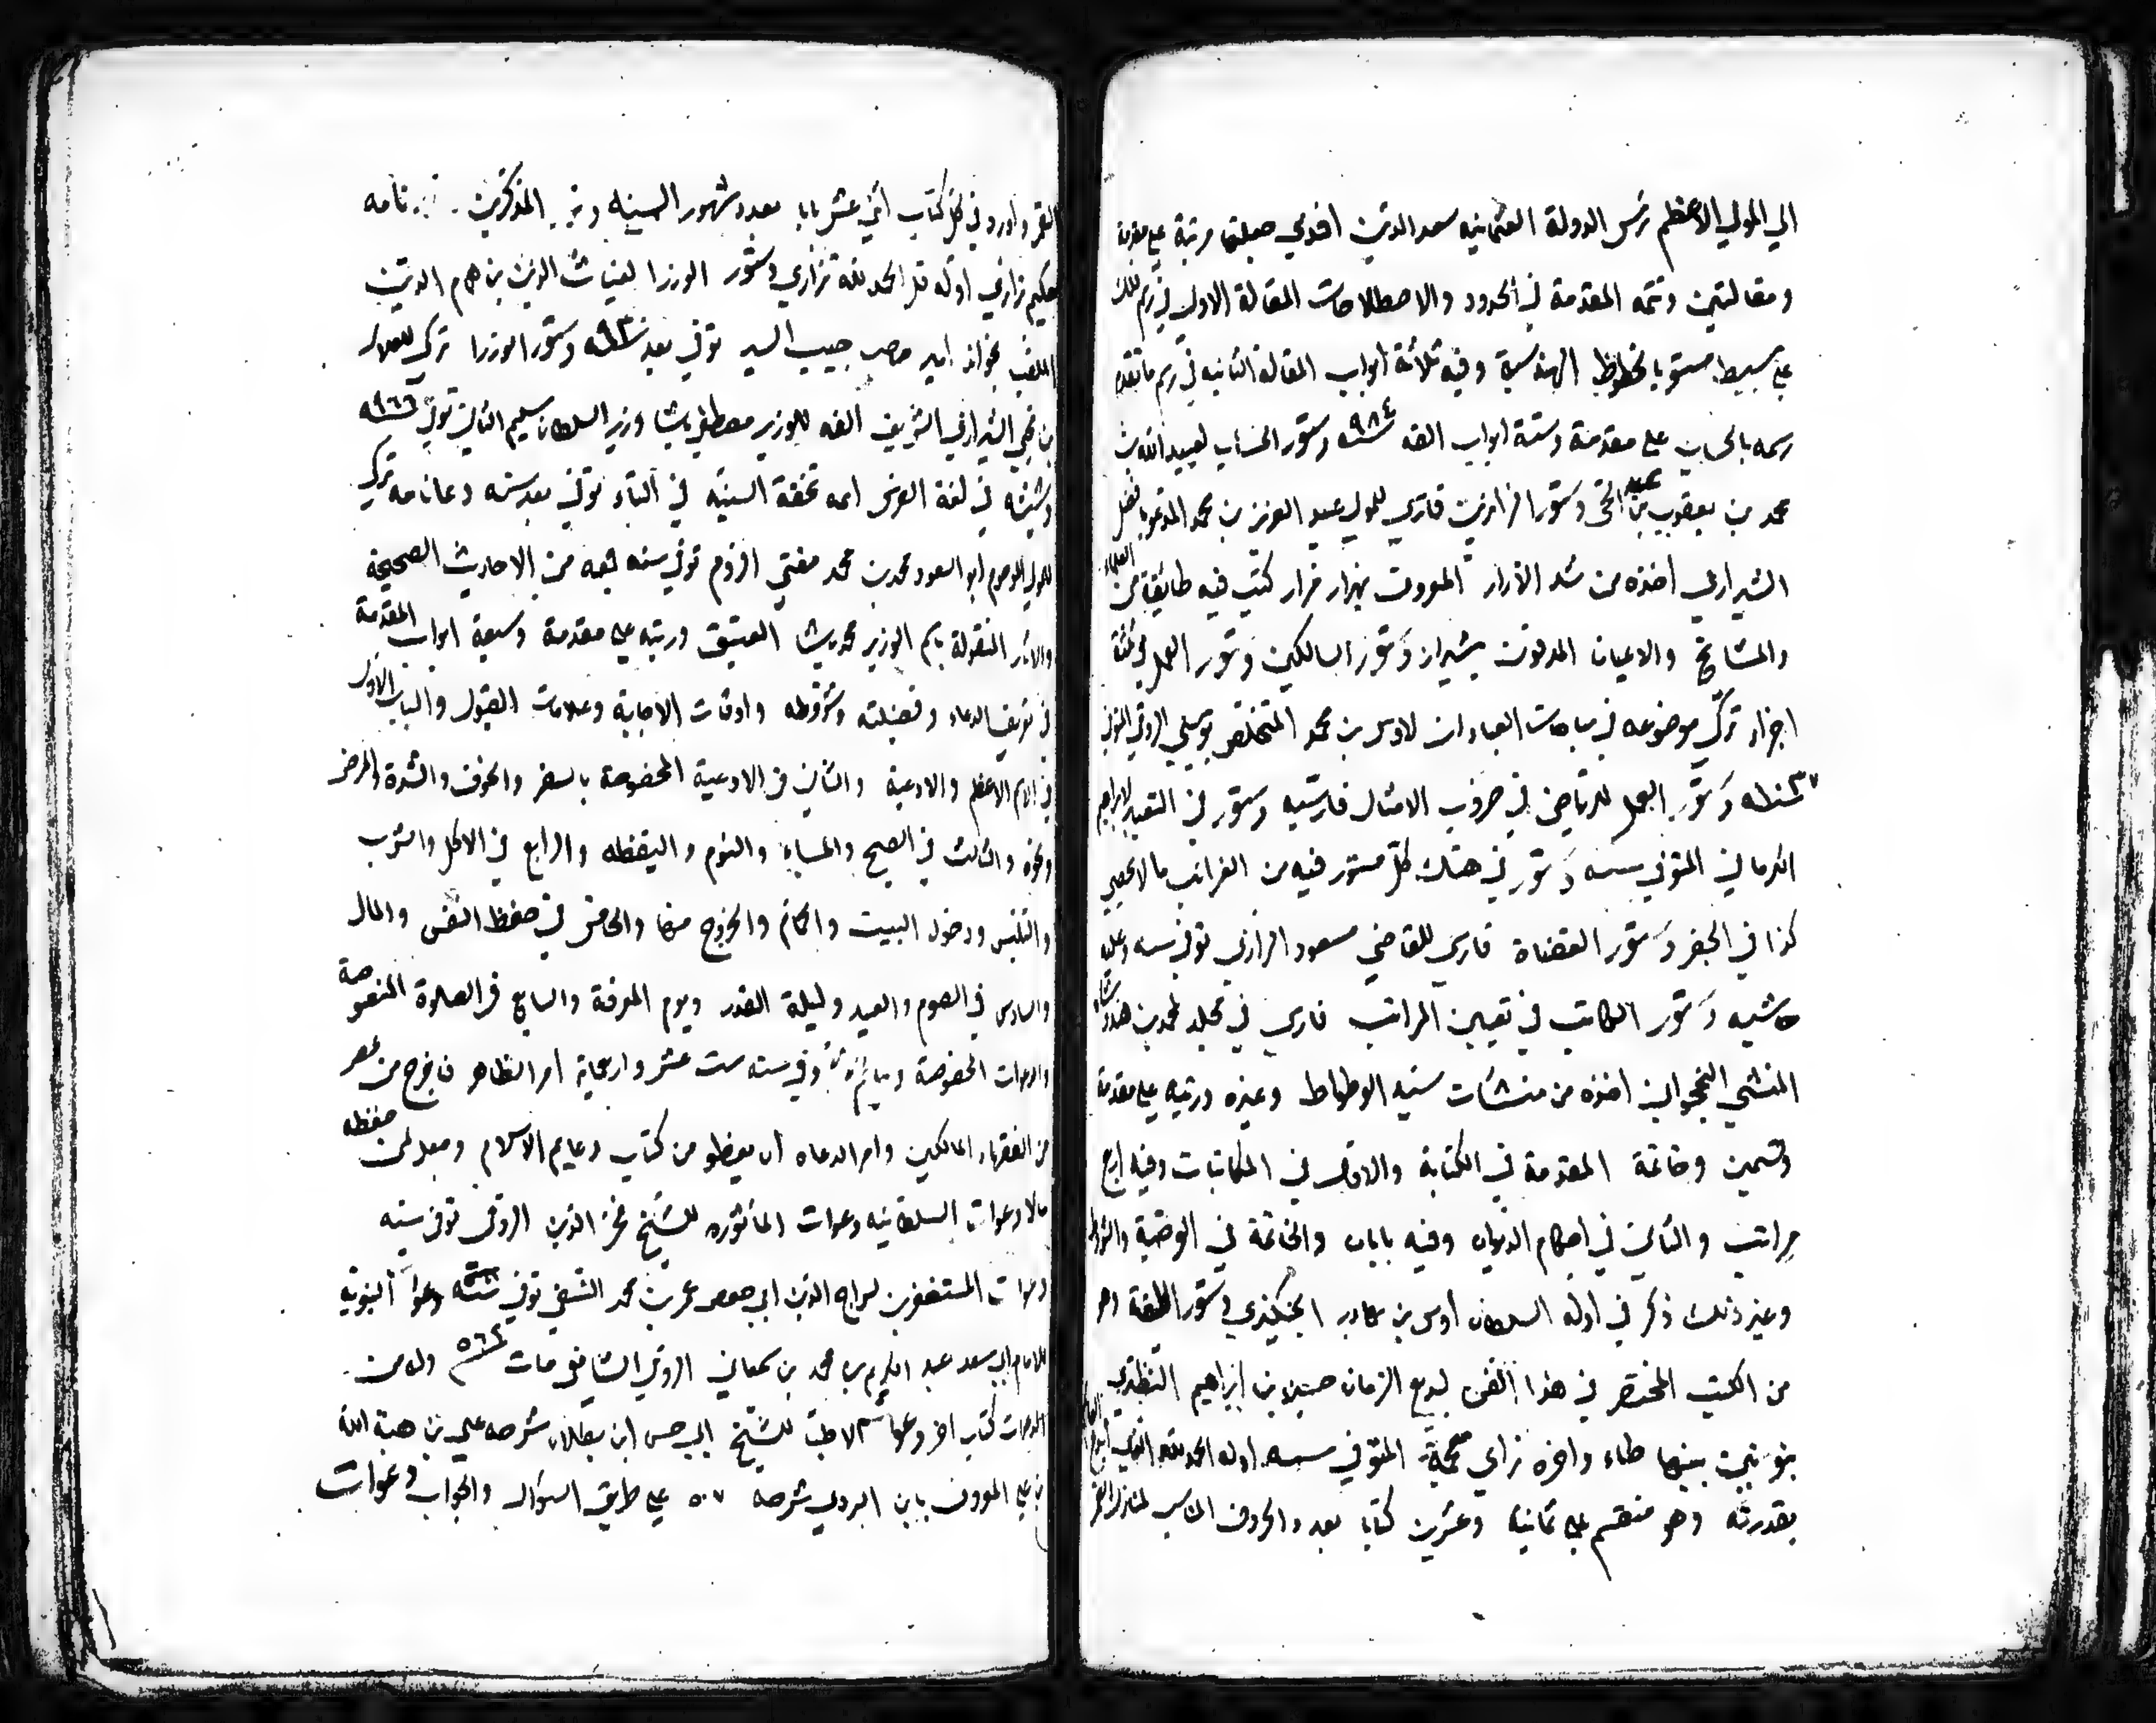 الي المولي الاعظم رئس الدولة العثمانيه سعد الدين افندي جعلتها مرتبة علي مقدمة
ومقالتين وتتمه المقدمة في الحدود والاصطلاحات المقالة الاولي في رسم تلك
علي بسيط مستو بالخطوط الهندسية وفيه ثلاثة ابواب المقالة الثانيه في رسم ما تقدم
رسمه بالحساب علي مقدمة وستة ابواب الفه ٩٨٤ دستور الحساب لعبيد الله بن
محمد بن يعقوب بن عبد الحي دستور الزائرين فارسي للمولي عبد العزيز بن محمد المدعو بافضل
الشيرازي اخذه من شد الازار المعروف بهزار مزار كتب فيه طائفة من العلماء
والمشائخ والاعيان المدفون بشيراز دستور السالكين دستور العمل في ثلثة
اجزاء تركي موضوعه في مباحث العبادات لاويس بن محمد المتخلص بويسي الرومي المتوفي
١٠٣٧ سنة دستور العمل للرياضي في ضروب الامثال فارسيه دستور في التعبير لابراهيم
الكرماني المتوفي سنه دستور في هتك كل مستور فيه من الغرائب ما لا يحصي
كذا في الجفر دستور القضاة فارسي للقاضي مسعود الرازي توفي سنه وعليه
حاشيه دستور الكاتب في تعيين المراتب فارسي في مجلد لمحمد بن هندوشاه
المنشي النخجواني اخذه من منشآت رشيد الوطواط وغيره ورتبه علي مقدمة
وقسمين وخاتمة المقدمة في الكتابة والاول في المكاتبات وفيه اربع
مراتب والثاني في احكام الديوان وفيه بابان والخاتمة في الوصية والشرائط
وغير ذلك ذكر في اوله السلطان اويس بن بهادر الجنكيزي دستور اللغة وهو
من الكتب المختصر في هذا الفن لبديع الزمان حسين بن ابراهيم النطنزي
بنونين بينهما طاء واخره زاي معجمة المتوفي سنه اوله الحمد لله الذي ابدع العالم
بقدرته وهو منقسم علي ثمانية وعشرين كتابا بعدد الحروف المناسب لمنازل القمر
القمر واورد في كل كتاب اثني عشر بابا بعدد شهور السنه المذكرين نامه
لحكيم نزاري اوله قل الحمد لله نزاري دستور الوزرا لغياث الدين بن همام الدين
الملقب بخواند امير صاحب حبيب السير توفي بعد سنة ٩٣ دستور الوزرا تركي
بن نجمي الشيرازي الشريف الفه للوزير مصطفي باشا وزير السلطان سليم الثاني توفي ٩٦٦
دشيشه في لغة الفرس اسمه تحفة السنيه في التاء توفي بعد سنه دعانامه تركي
للمولي المرحوم ابو السعود محمد بن محمد مفتي الروم توفي سنه جمعه من الاحاديث الصحيحة
والاثار المنقولة باسم الوزير محمد باشا العتيق ورتبه علي مقدمة وسبعة ابواب المقدمة
في تعريف الدعاء وفضيلته وشروطه واوقات الاجابة وعلامات القبول والباب الاول
في الاسم الاعظم والادعية والثاني في الادعية المخصوصة بالسفر والخوف والشدة والمرض
ونحوه والثالث في الصبح والمساء والنوم واليقظه والرابع في الاكل والشرب
والتلبس ودخول البيت والحمام والخروج منها والخامس في حفظ النفس والمال
والسادس في الصوم والعيد وليلة القدر ويوم العرفة والسابع في الصلوة المنصوصة
والدعوات المخصوصة وفي سنه ست عشر واربعماية امر الظاهر فاخرج من مصر
من الفقهاء المالكيين وامر الدعاه ان يعظو من كتاب دعايم الاسلام وجعل لمن حفظه
مالا دعوات السلطانيه دعوات المأثوره للشيخ فخر الدين الرومي توفي سنه
دعوات المستغفرين لسراج الدين ابي حفص عمر بن محمد النسفي توفي سنه دعوات النبويه
للامام ابي سعد عبد الكريم بن محمد بن سمعاني الروي الشافعي مات ٥٦٤ وله من
الدعوات كتاب اخر دعوة الاطبا للشيخ ابي حسن ابن بطلان شرحه علي بن هبة الله
بن علي المعروف بابن البردي شرحه ٥٠٧ علي طريق السؤال والجواب دعوات